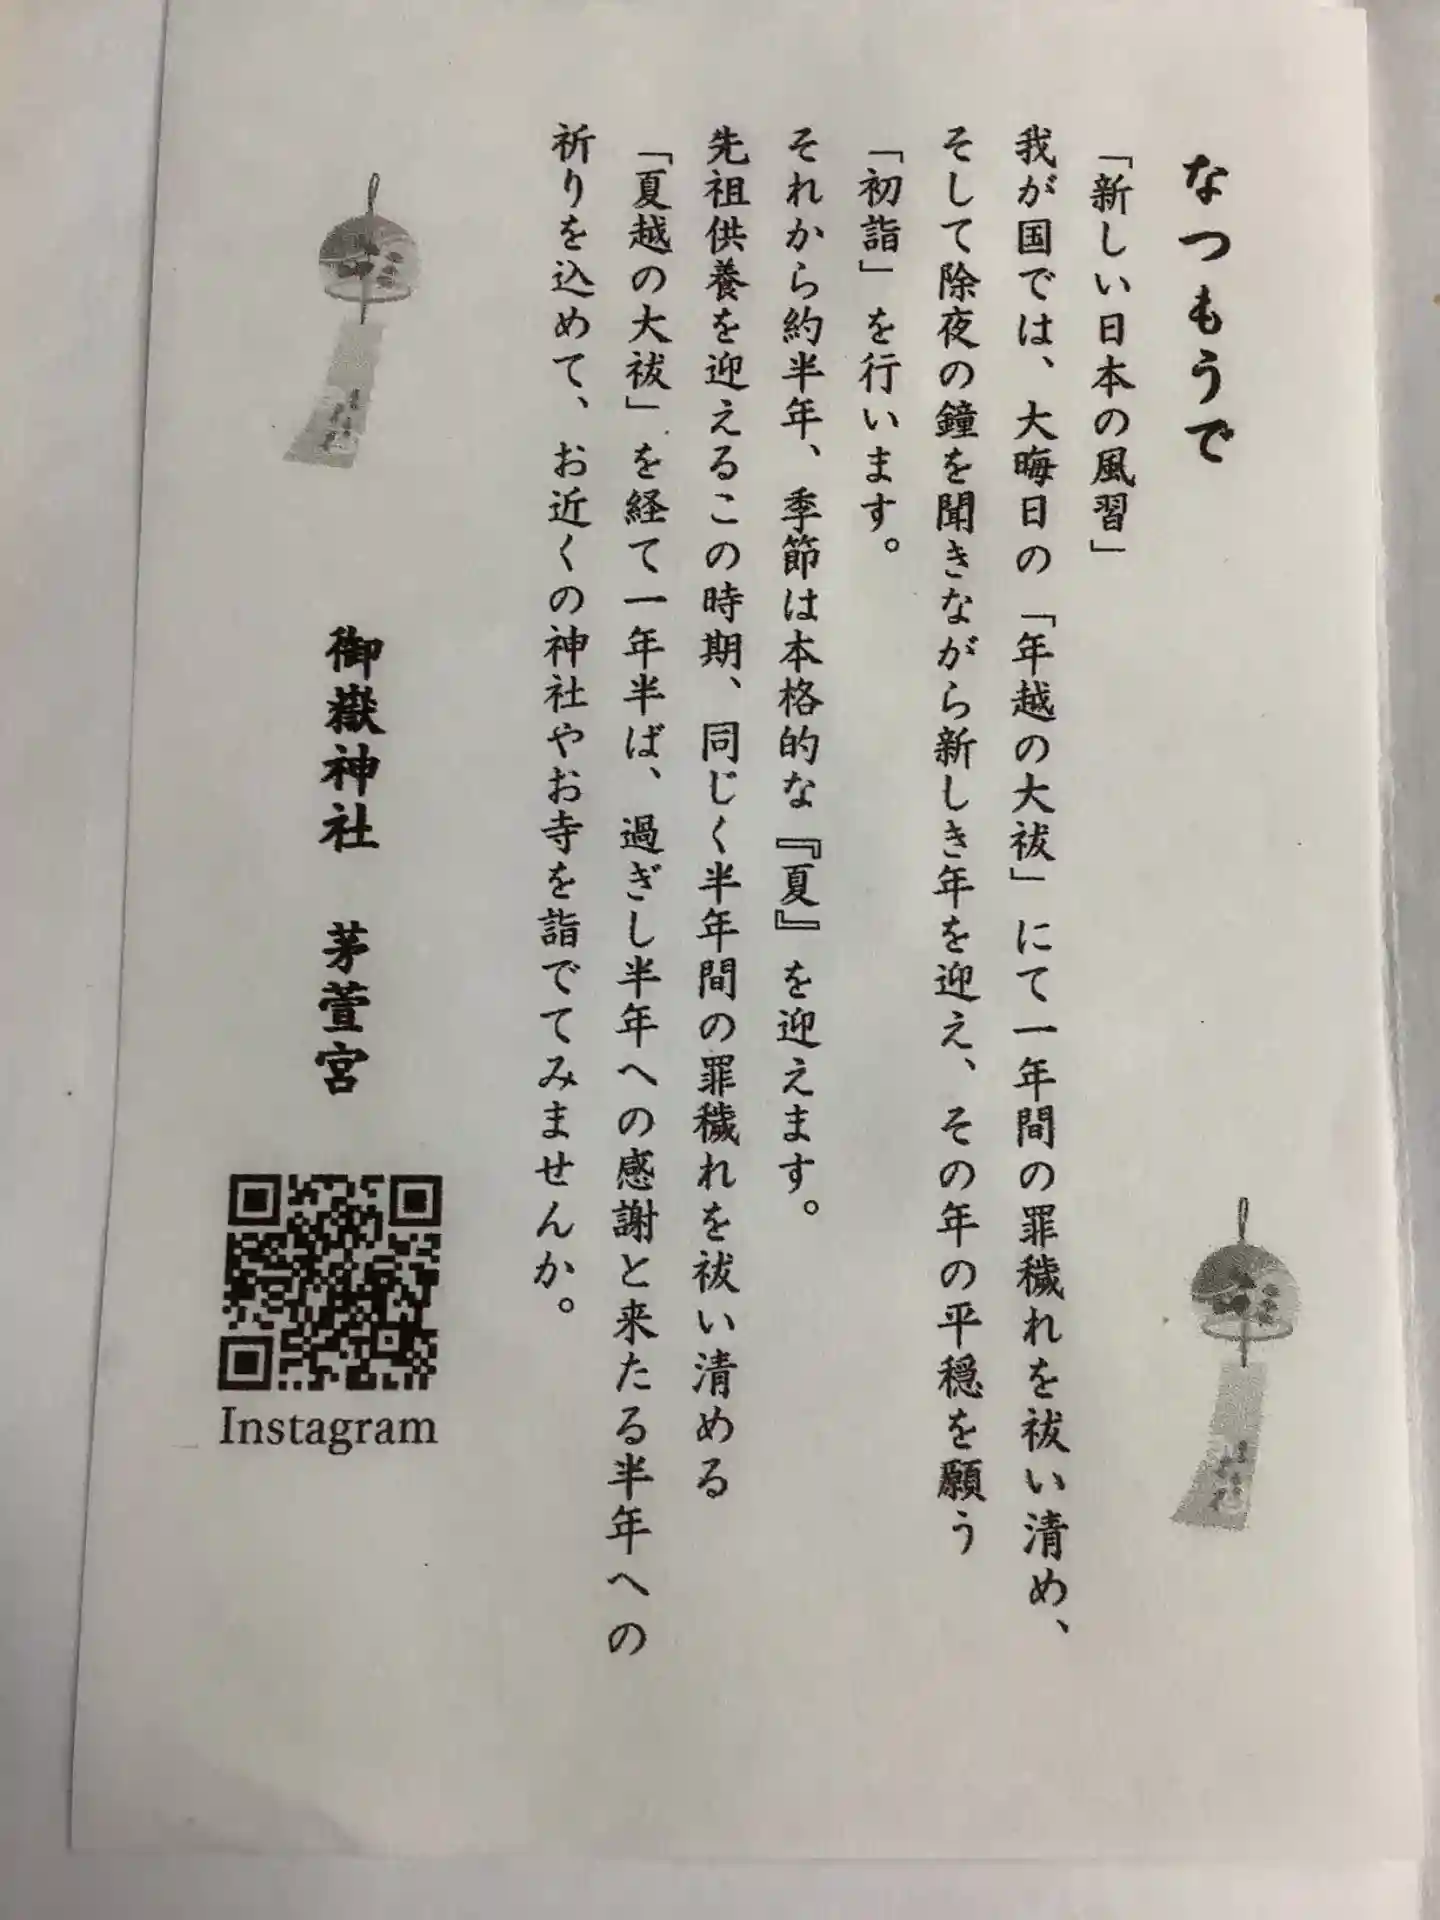 なつもうで
「新しい日本の風習」
我が国では、大晦日の「年越の大祓」にて一年間の罪穢れを祓い清め、
そして除夜の鐘を聞きながら新しき年を迎え、その年の平穏を願う
「初詣」を行います。
それから約半年、季節は本格的な『夏』を迎えます。
先祖供養を迎えるこの時期、同じく半年間の罪穢れを祓い清める
「夏越の大祓」を経て一年半ば、過ぎし半年への感謝と来たる半年への
祈りを込めて、お近くの神社やお寺を詣でてみませんか。
御嶽神社 茅萱宮
Instagram